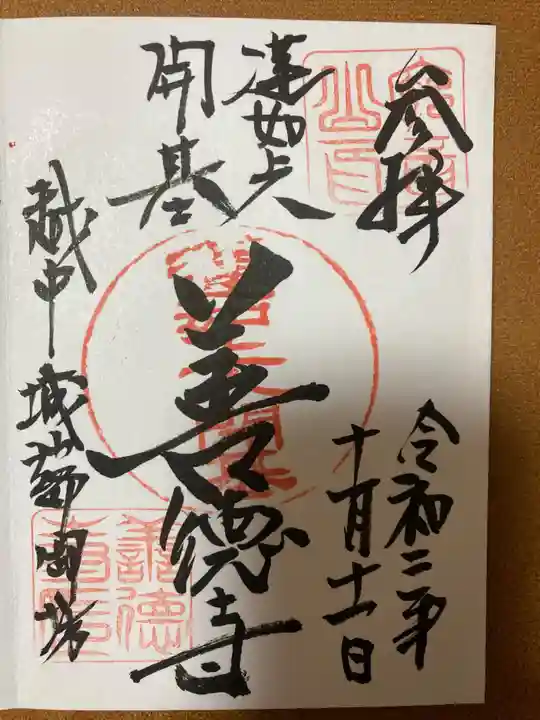 参拝
令和二年
十月十一日
蓮如上人
開基
善徳寺
越中城端御坊
善徳